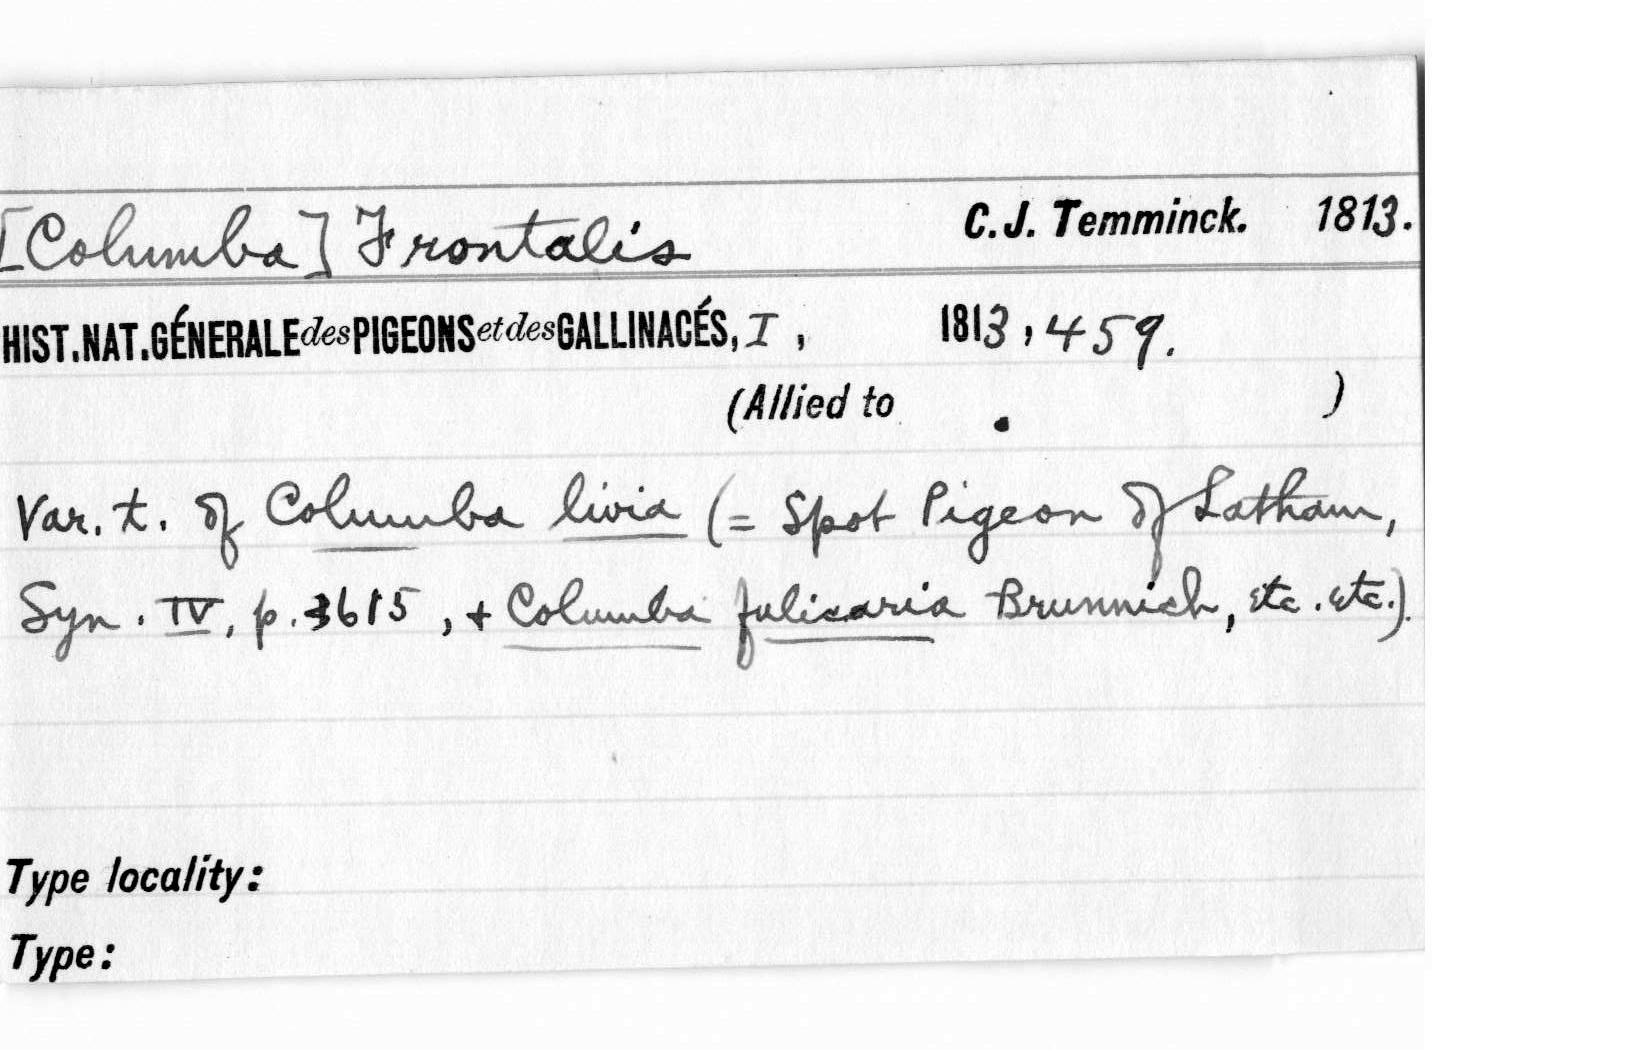 [Columba] Frontalis C.J. Temminck. 1813.
HIST.NAT.GÉNERALE des PIGEONS et des GALLINACÉS, I, 1813, 459.
(Allied to . )
Var. t. of Columba livia (= Spot Pigeon of Latham,
Syn. IV, p. 615, + Columba fulicaria Brunnich, etc. etc.).
Type locality:
Type: